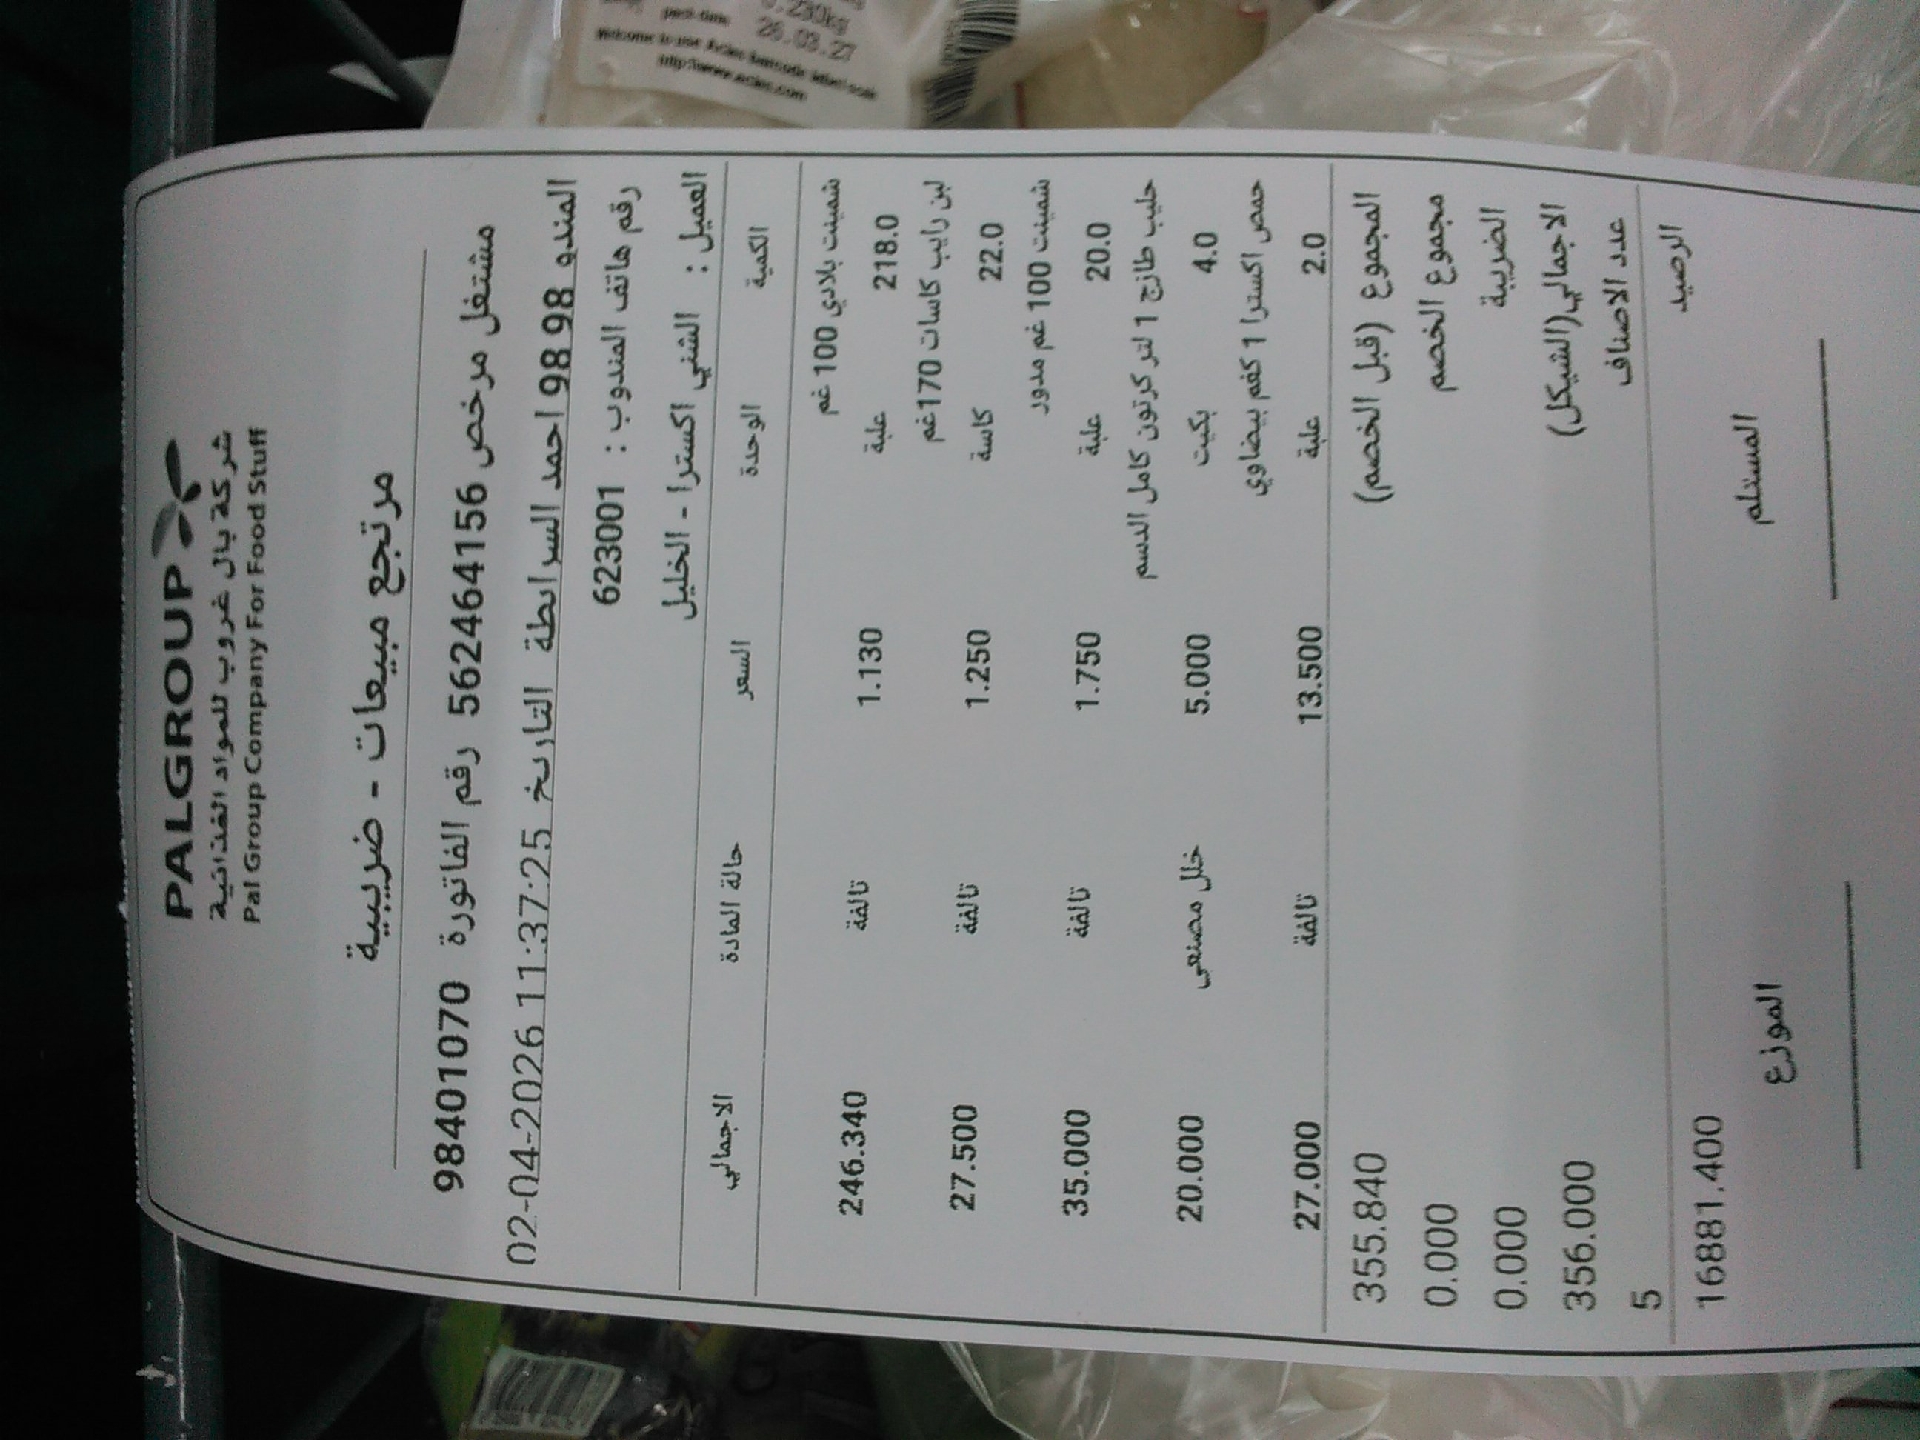 0.230kg
pack-time 26.03.27
Welcome to use Aclas barcode label scale
http://www.aclas.com
PALGROUP
شركة بال غروب للمواد الغذائية
Pal Group Company For Food Stuff
مرتجع مبيعات - ضريبية
مشتغل مرخص 562464156 رقم الفاتورة 98401070
المندو 98 98 احمد السرابطة التاريخ 02-04-2026 11:37:25
رقم هاتف المندوب : 623001
العميل : الشني اكسترا - الخليل
الكمية الوحدة السعر حالة المادة الاجمالي
شمينت بلادي 100 غم
218.0 علبة 1.130 تالفة 246.340
لبن رايب كاسات 170غم
22.0 كاسة 1.250 تالفة 27.500
شمينت 100 غم مدور
20.0 علبة 1.750 تالفة 35.000
حليب طازج 1 لتر كرتون كامل الدسم
4.0 بكيت 5.000 خلل مصنعي 20.000
حمص اكسترا 1 كغم بيضاوي
2.0 علبة 13.500 تالفة 27.000
المجموع (قبل الخصم) 355.840
مجموع الخصم 0.000
الضريبة 0.000
الاجمالي(الشيكل) 356.000
عدد الاصناف 5
الرصيد 16881.400
المستلم الموزع